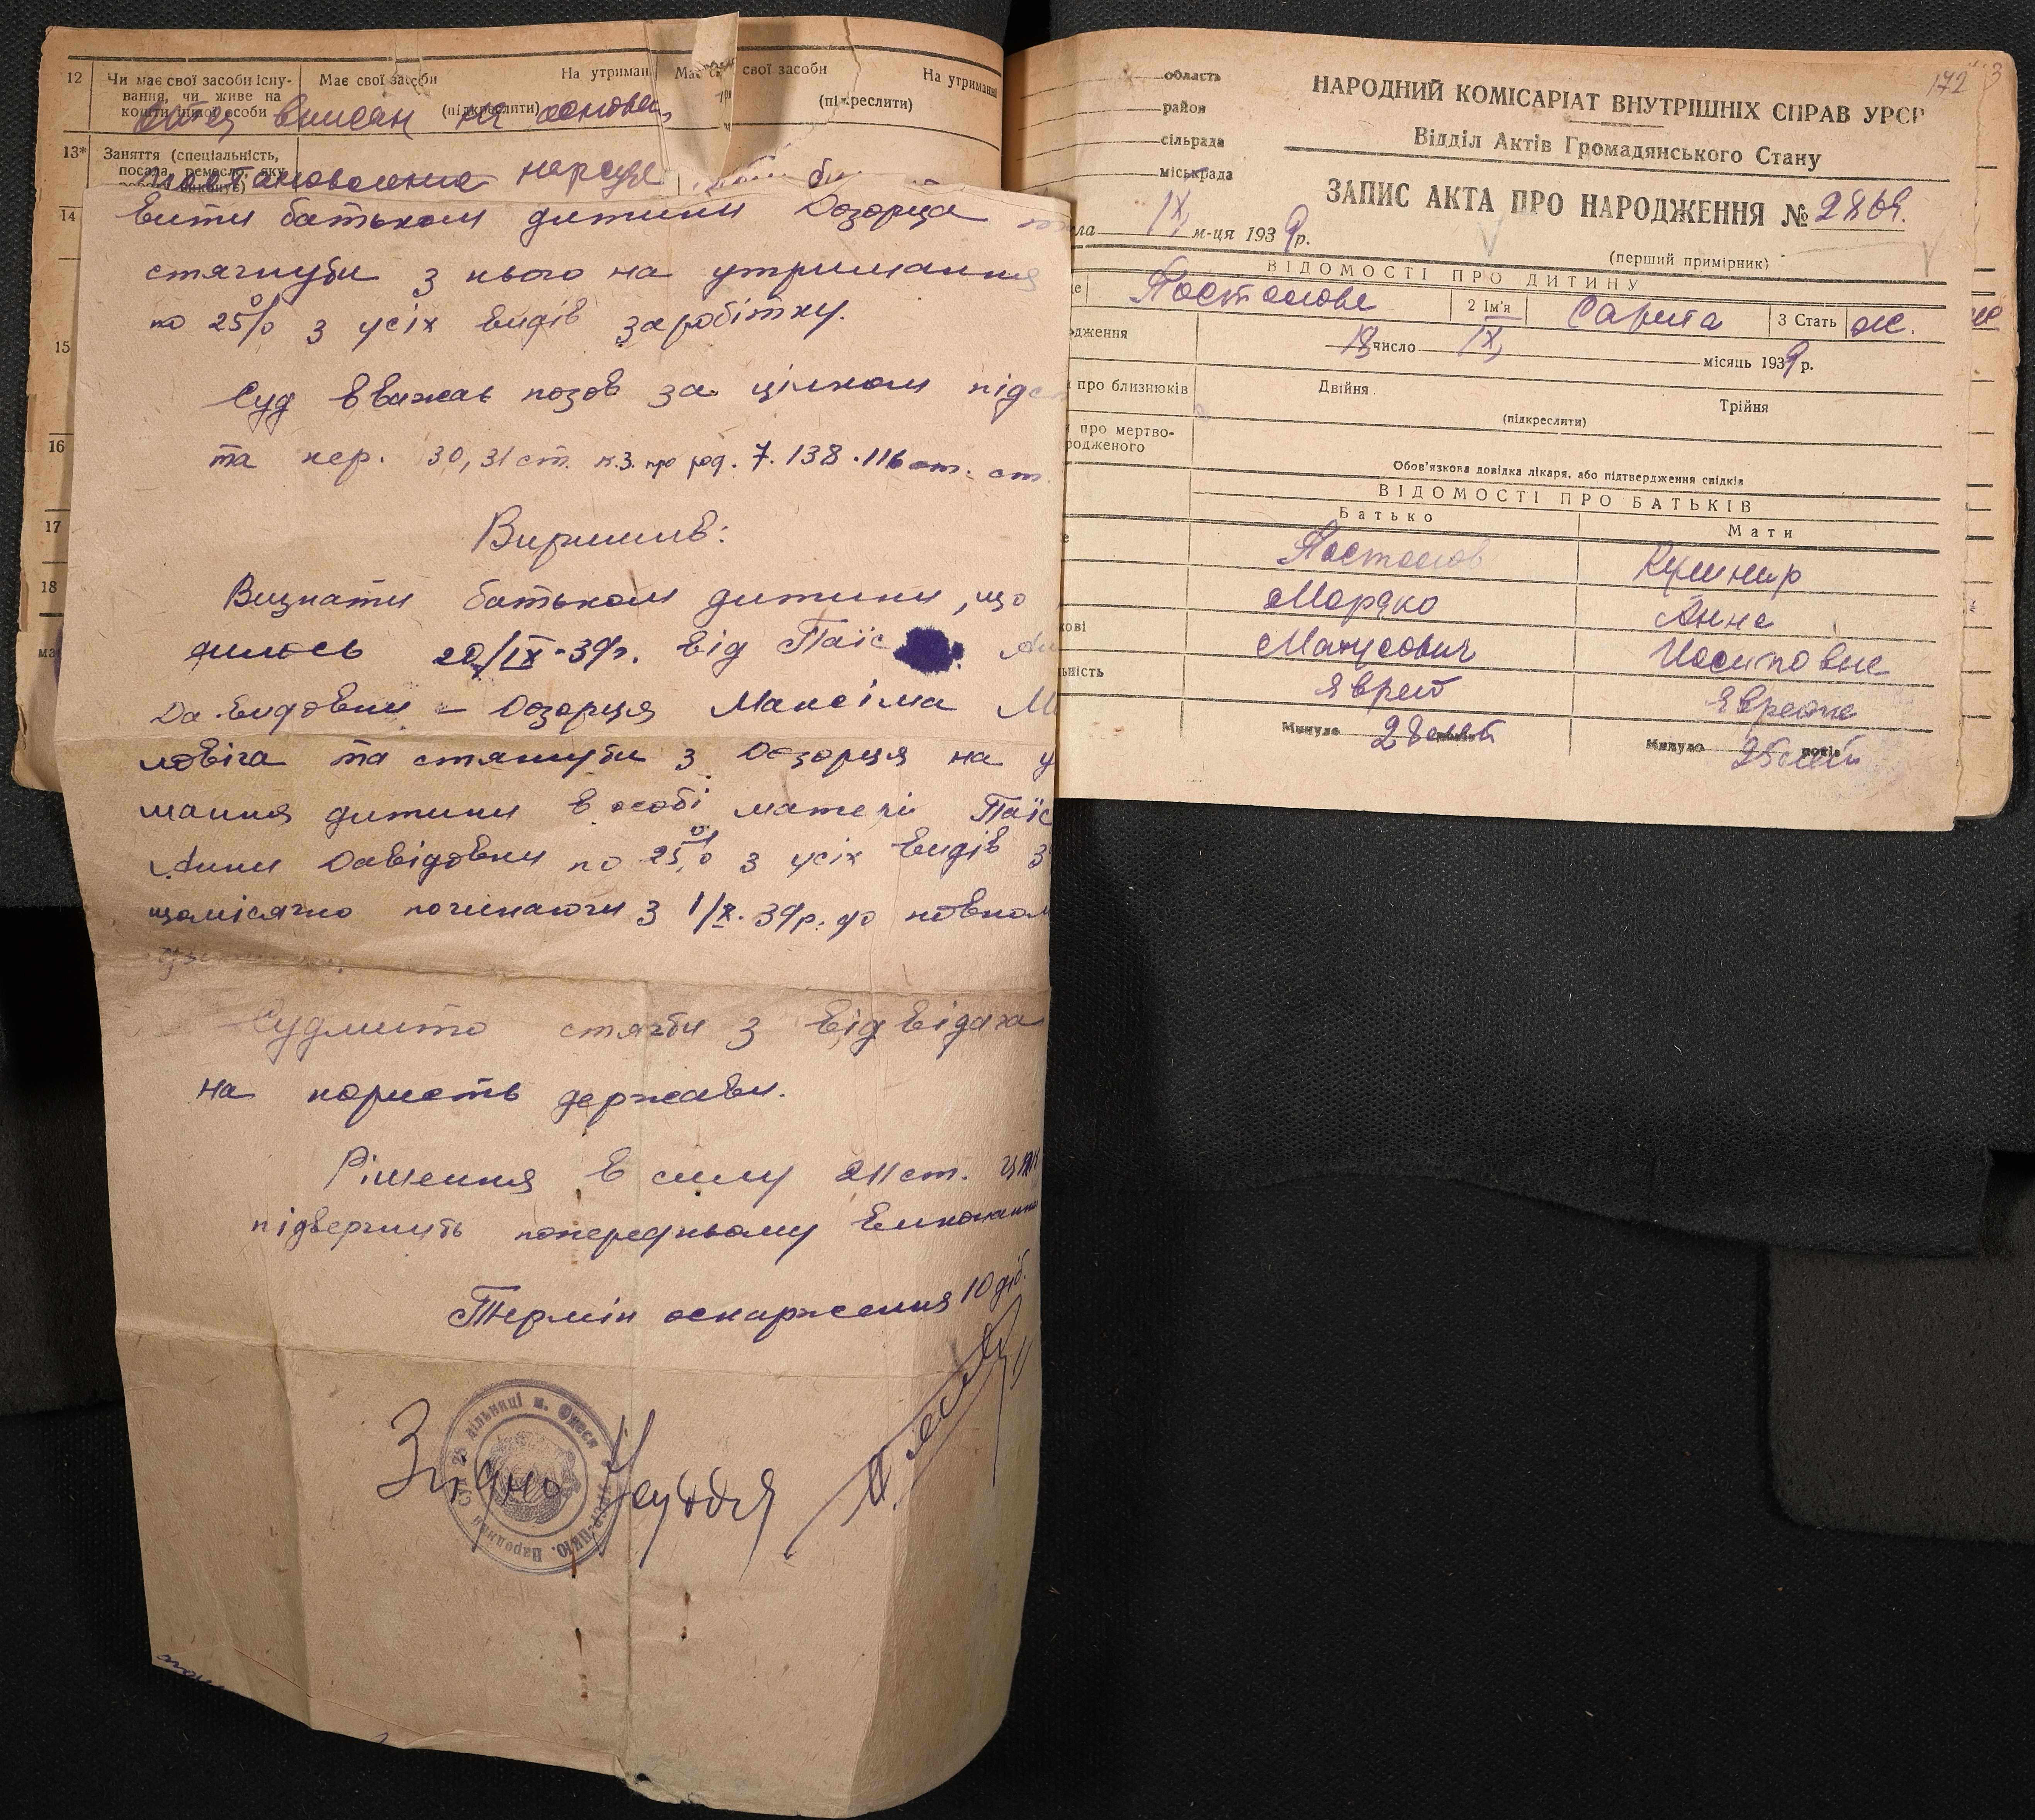 12
Чи має свої засоби існу-
вання, чи живе на
кошти іншої особи
Має свої засоби
На утриман
(підкреслити)
свої засоби
На утриманні
(підкреслити)
вписан на основан
13* Заняття (спеціальність,
посада, ремесло, яку
народн
14
15
16
17
18
вити батьком дитини Дозорца
стягнути з нього на утримання
по 25% з усіх видів заробітку.
Суд вважає позов за цілком підс
та кер. 30, 31 ст. к.з. про род. 7. 138. 116 ст.
Вирішив:
Визнати батьком дитини, що
дилось 20/IX-39р. від Паіс
Давидовни – Дозорця Максіма М
ловіча та стягнути з Дозорця на у
мання дитини в особі матері Паіс
Анни Давідовни по 25% з усіх видів з
щомісячно починаючи з 1/X. 39р. до повном
Судмито стягти з відвідача
на користь держави.
Рішення в силу 211 ст. ЦПК
підвергнуть попередньому виконанню
Термін оскарження 10 діб.
Згідно Суддя
дільниці м. Одеси
Народний
172
область
район
сільрада
міськрада
НАРОДНИЙ КОМІСАРІАТ ВНУТРІШНІХ СПРАВ УРСР
Відділ Актів Громадянського Стану
ЗАПИС АКТА ПРО НАРОДЖЕННЯ № 2869.
IX, м-ця 1939р.
(перший примірник)
ВІДОМОСТІ ПРО ДИТИНУ
Постолова
2 Ім'я
Сарита
3 Стать
ж.
дження
18 число IX, місяць 1939 р.
про близнюків
Двійня
Трійня
(підкреслити)
про мертво-
родженого
Обов'язкова довідка лікаря, або підтвердження свідків
ВІДОМОСТІ ПРО БАТЬКІВ
Батько
Мати
Постолов
Кушнир
Мордко
Анна
Манусович
Иосиповна
еврей
еврейка
Минуло 28 лет
Минуло 25 лет